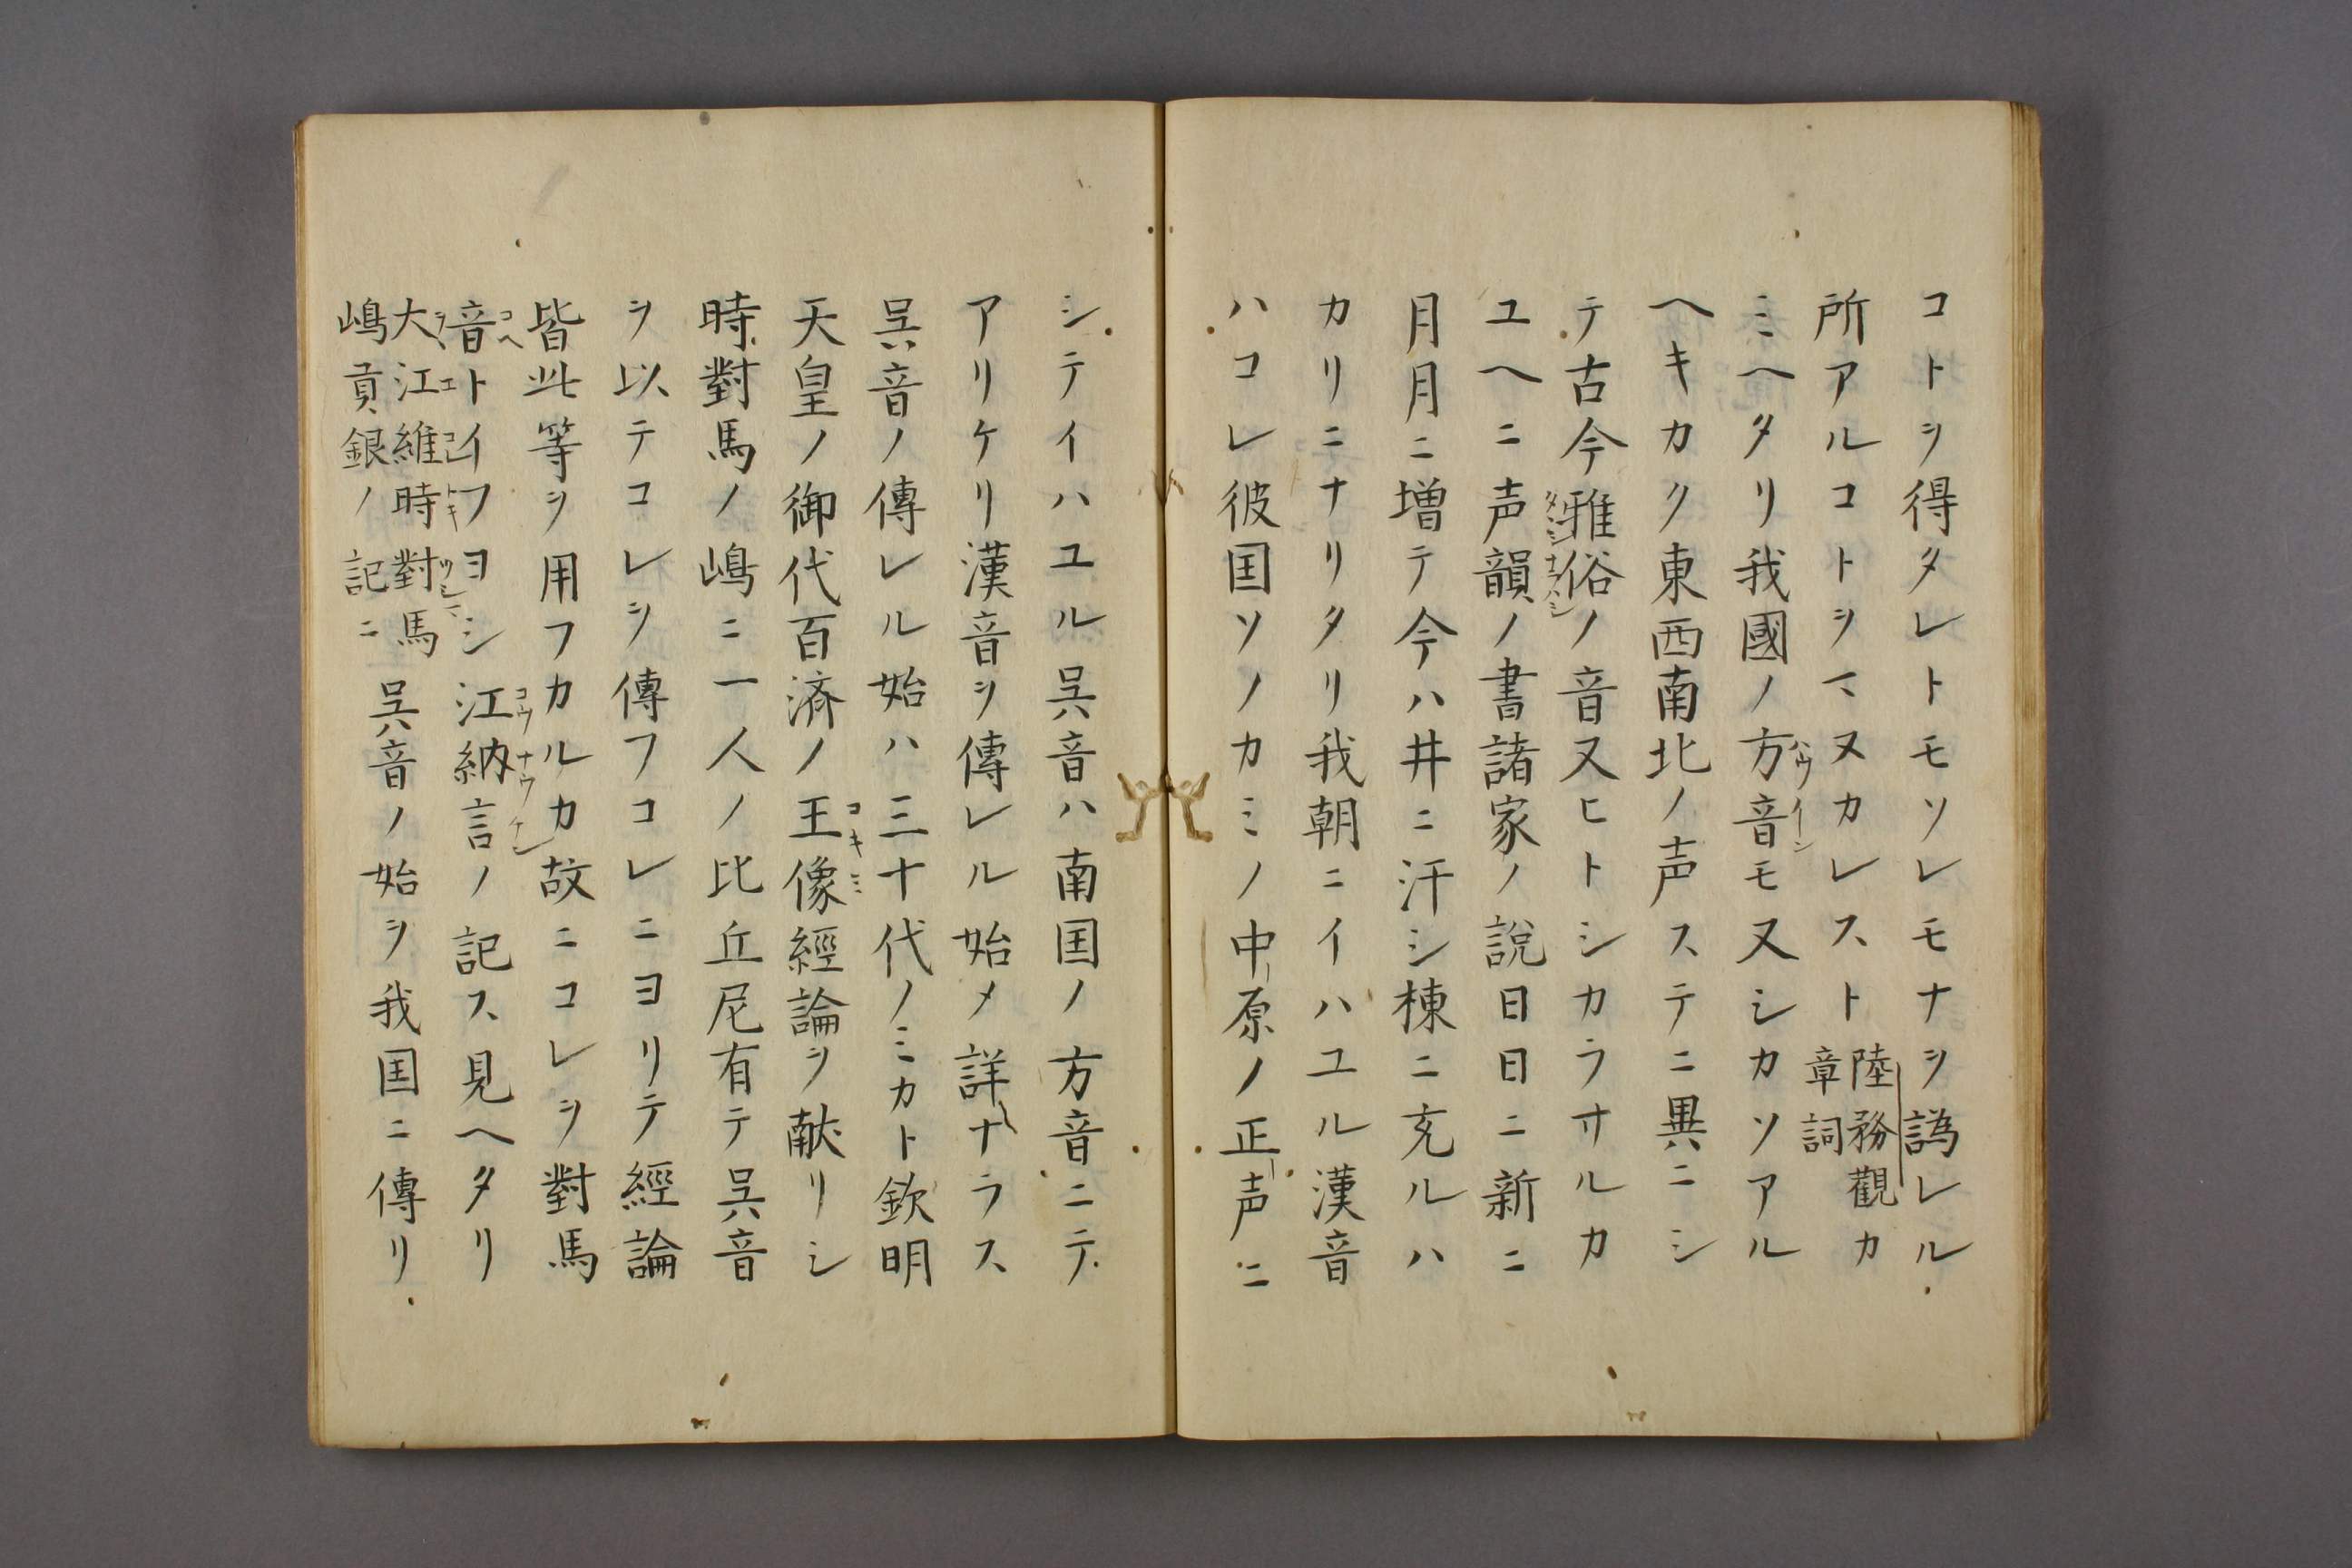 コトヲ得タレトモソレモナヲ譌レル
所アルコトヲマヌカレスト陸務觀カ
章詞
ミヘタリ我國ノ方音モ又シカソアル
ハウイン
ヘキカク東西南北ノ声ステニ異ニシ
テ古今雅俗ノ音又ヒトシカラサルカ
ユヘニ声韻ノ書諸家ノ說日日ニ新ニ
月月ニ増テ今ハ井ニ汗シ棟ニ充ルハ
カリニナリタリ我朝ニイハユル漢音
ハコレ彼国ソノカミノ中原ノ正声ニ
シテイハユル呉音ハ南国ノ方音ニテ
アリケリ漢音ヲ傳レル始メ詳ナラス
呉音ノ傳レル始ハ三十代ノミカト欽明
天皇ノ御代百済ノ王像經論ヲ献リシ
コキミ
時對馬ノ嶋ニ一人ノ比丘尼有テ呉音
ヲ以テコレヲ傳フコレニヨリテ經論
皆此等ヲ用フカルカ故ニコレヲ對馬
音トイフヨシ江納言ノ記ス見ヘタリ
コヘ
コウナウケン
大江維時對馬
嶋貢銀ノ記ニ
トキ
ツシマ
呉音ノ始ヲ我国ニ傳リ